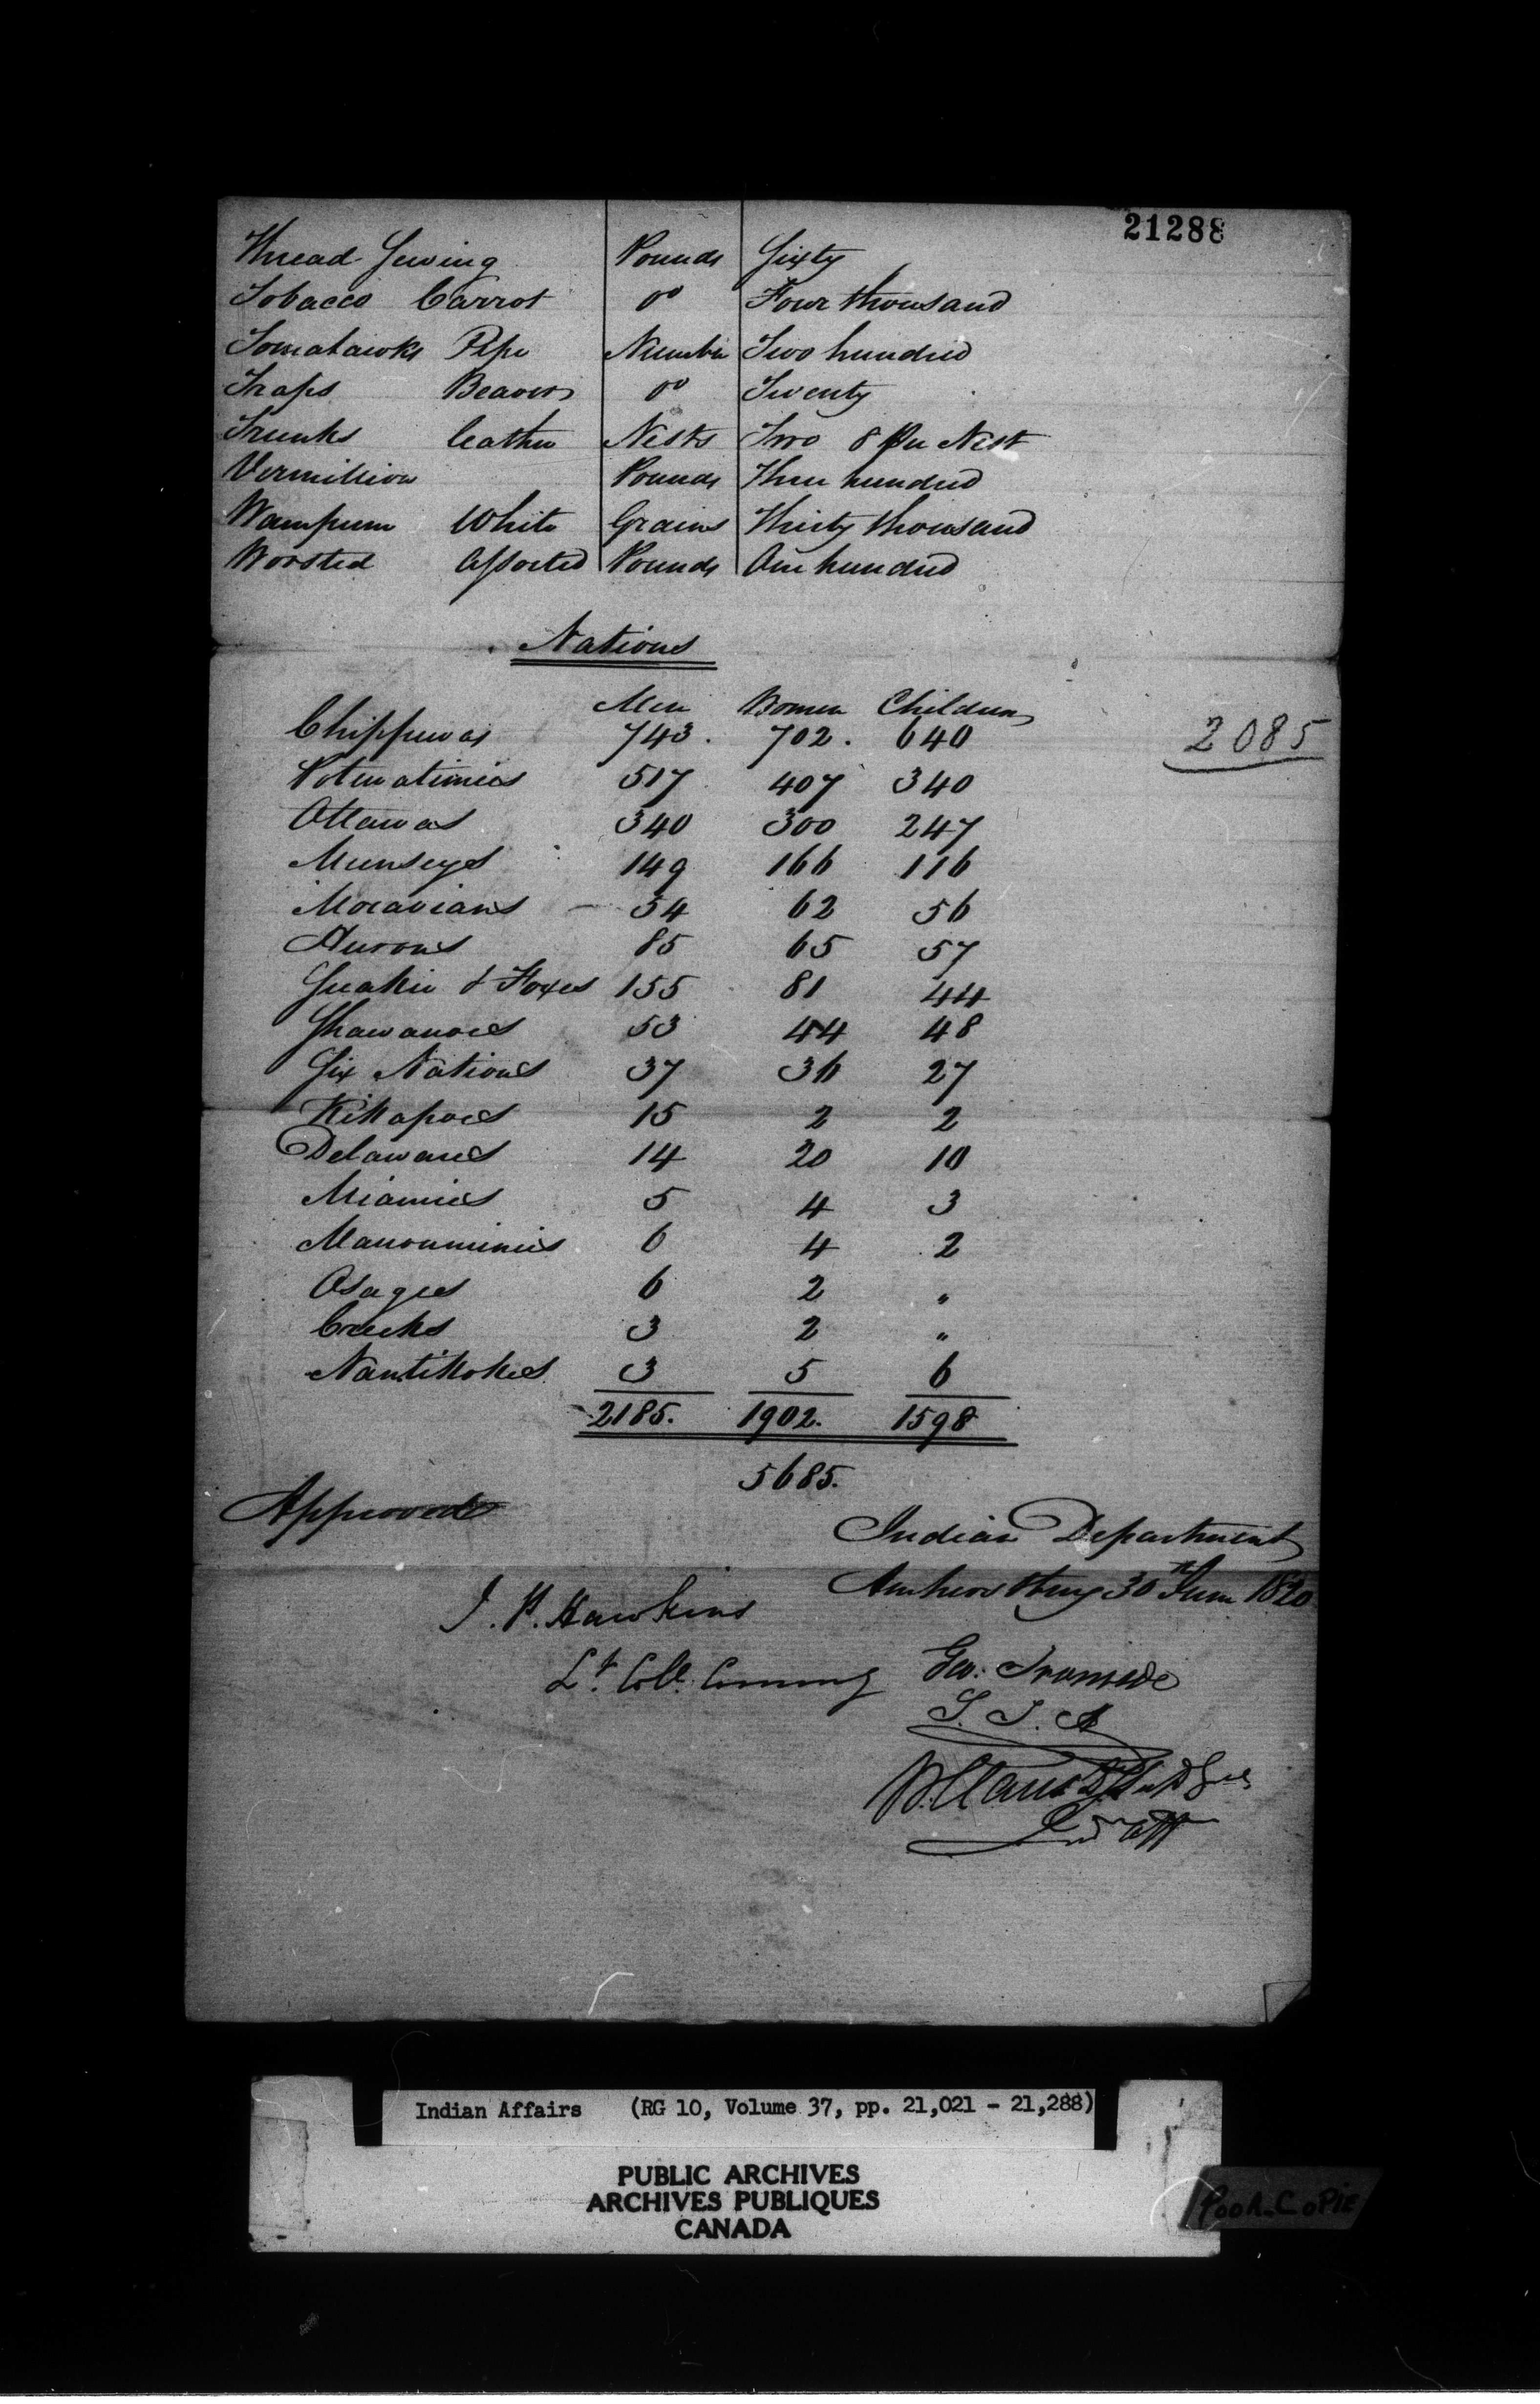 21288
Thread Sewing Pounds Sixty
Tobacco Carrot Do Four thousand
Tomahawks Pipe Number Two hundred
Traps Beaver Do Twenty
Trunks leather Nests Two 8 Per Nest
Vermillion Pounds Three hundred
Wampum White Grains Thirty thousand
Worsted Assorted Pounds One hundred
Nations
Men Women Children
Chippewas 743. 702. 640 2085
Potewatimies 517 407 340
Ottawas 340 300 247
Munseys 149 166 116
Moravians 54 62 56
Hurons 85 65 57
Seakie & Foxes 155 81 44
Shawanoes 53 44 48
Six Nations 37 36 27
Kikapoes 15 2 2
Delawares 14 20 10
Miamies 5 4 3
Manouminies 6 4 2
Osages 6 2 "
Creeks 3 2 "
Nantikokes 3 5 6
2185. 1902. 1598
5685.
Approved
Indian Department
Amherstburg 30th June 1820
J. P. Hawkins
Lt. Coll. Commg
Geo: Ironside
S. I. A
W. Claus D. Supt Genl
Ind Aff
Indian Affairs (RG 10, Volume 37, pp. 21,021 - 21,288)
PUBLIC ARCHIVES
ARCHIVES PUBLIQUES
CANADA
POOR COPIE